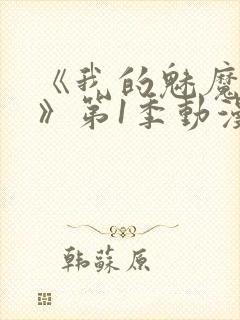 《我的魅魔
》第1季动漫
韩蘇原